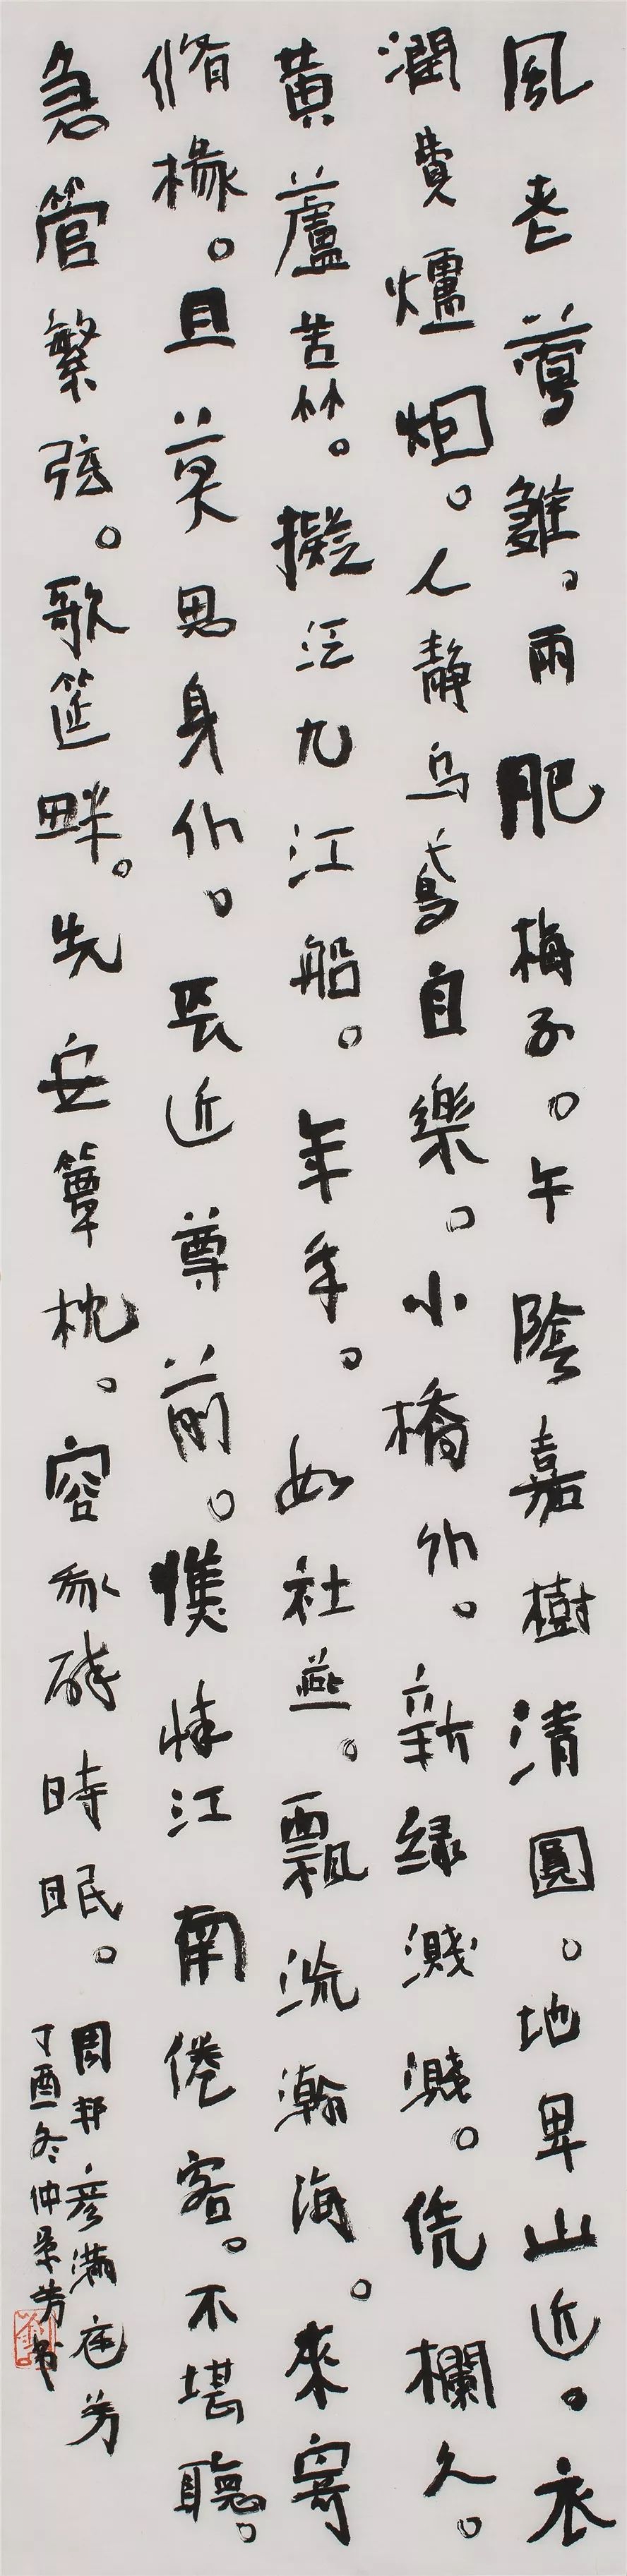 風老鶯雛。雨肥梅子。午陰嘉樹清圓。地卑山近。衣
潤費爐烟。人靜烏鳶自樂。小橋外。新綠濺濺。凭欄久。
黃蘆苦竹。擬泛九江船。年年。如社燕。飄流瀚海。來寄
脩椽。且莫思身外。長近尊前。憔悴江南倦客。不堪聽。
急管繁弦。歌筵畔。先安簟枕。容我醉時眠。
周邦彥滿庭芳
丁酉冬仲景芳书